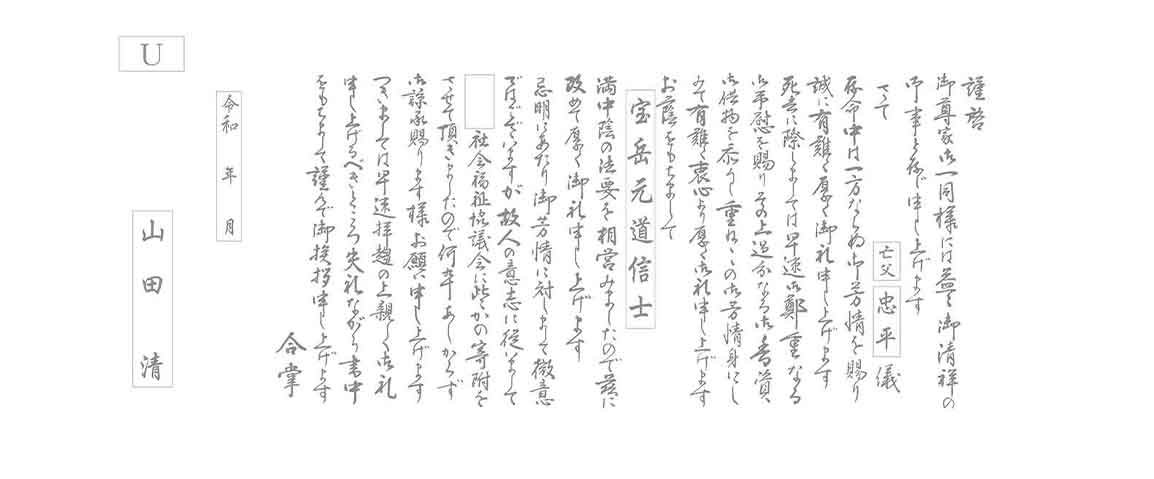 謹啓
御尊家御一同様には益々御清祥の
御事と存じ申し上げます
さて
亡父 忠平 儀
存命中は一方ならぬ御芳情を賜り
誠に有難く厚く御礼申し上げます
死去に際しましては早速御鄭重なる
御弔慰を賜りその上過分なる御香資、
御供物を忝うし重ね〱の御芳情身にし
みて有難く衷心より厚く御礼申し上げます
お蔭をもちまして
宝岳元道信士
満中陰の法要を相営みましたので茲に
改めて厚く御礼申し上げます
忌明にあたり御芳情に対しまして微意
ではございますが故人の意志に従いまして
社会福祉協議会に些かの寄附を
させて頂きましたので何卒あしからず
御諒承賜ります様お願い申し上げます
つきましては早速拝趨の上親しく御礼
申し上げるべきところ失礼ながら書中
をもちまして謹んで御挨拶申し上げます
合掌
令和 年 月
山田 清
U